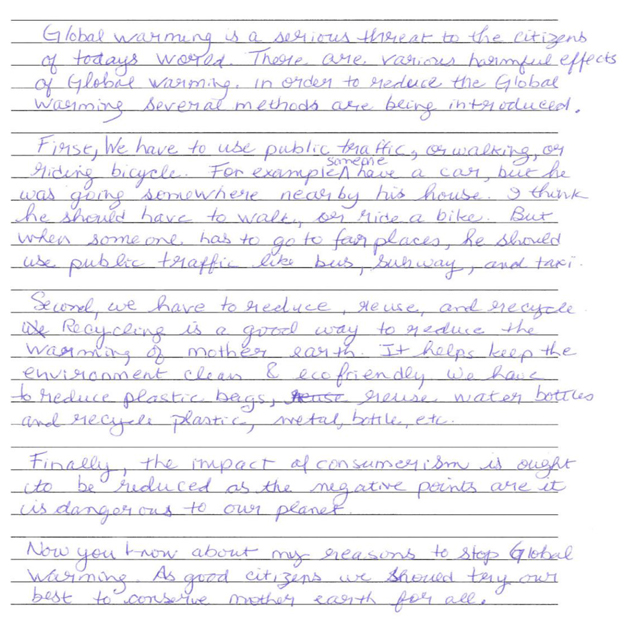 Global warming is a serious threat to the citizens
of todays world. There are various harmful effects
of Global Warming. in order to reduce the Global
Warming several methods are being introduced.
First, We have to use public traffic, or walking, or
riding bicycle. For example, someone have a car, but he
was going somewhere nearby his house. I think
he should have to walk, or ride a bike. But
when someone has to go to far places, he should
use public traffic like bus, subway, and taxi.
Second, we have to reduce, reuse, and recycle.
Recycling is a good way to reduce the
warming of mother earth. It helps keep the
environment clean & ecofriendly. We have
to reduce plastic bags, reuse water bottles
and recycle plastic, metal, bottle, etc.
Finally, the impact of consumerism is ought
to be reduced as the negative points are it
is dangerous to our planet.
Now you know about my reasons to stop Global
Warming. As good citizens we should try our
best to conserve mother earth for all.